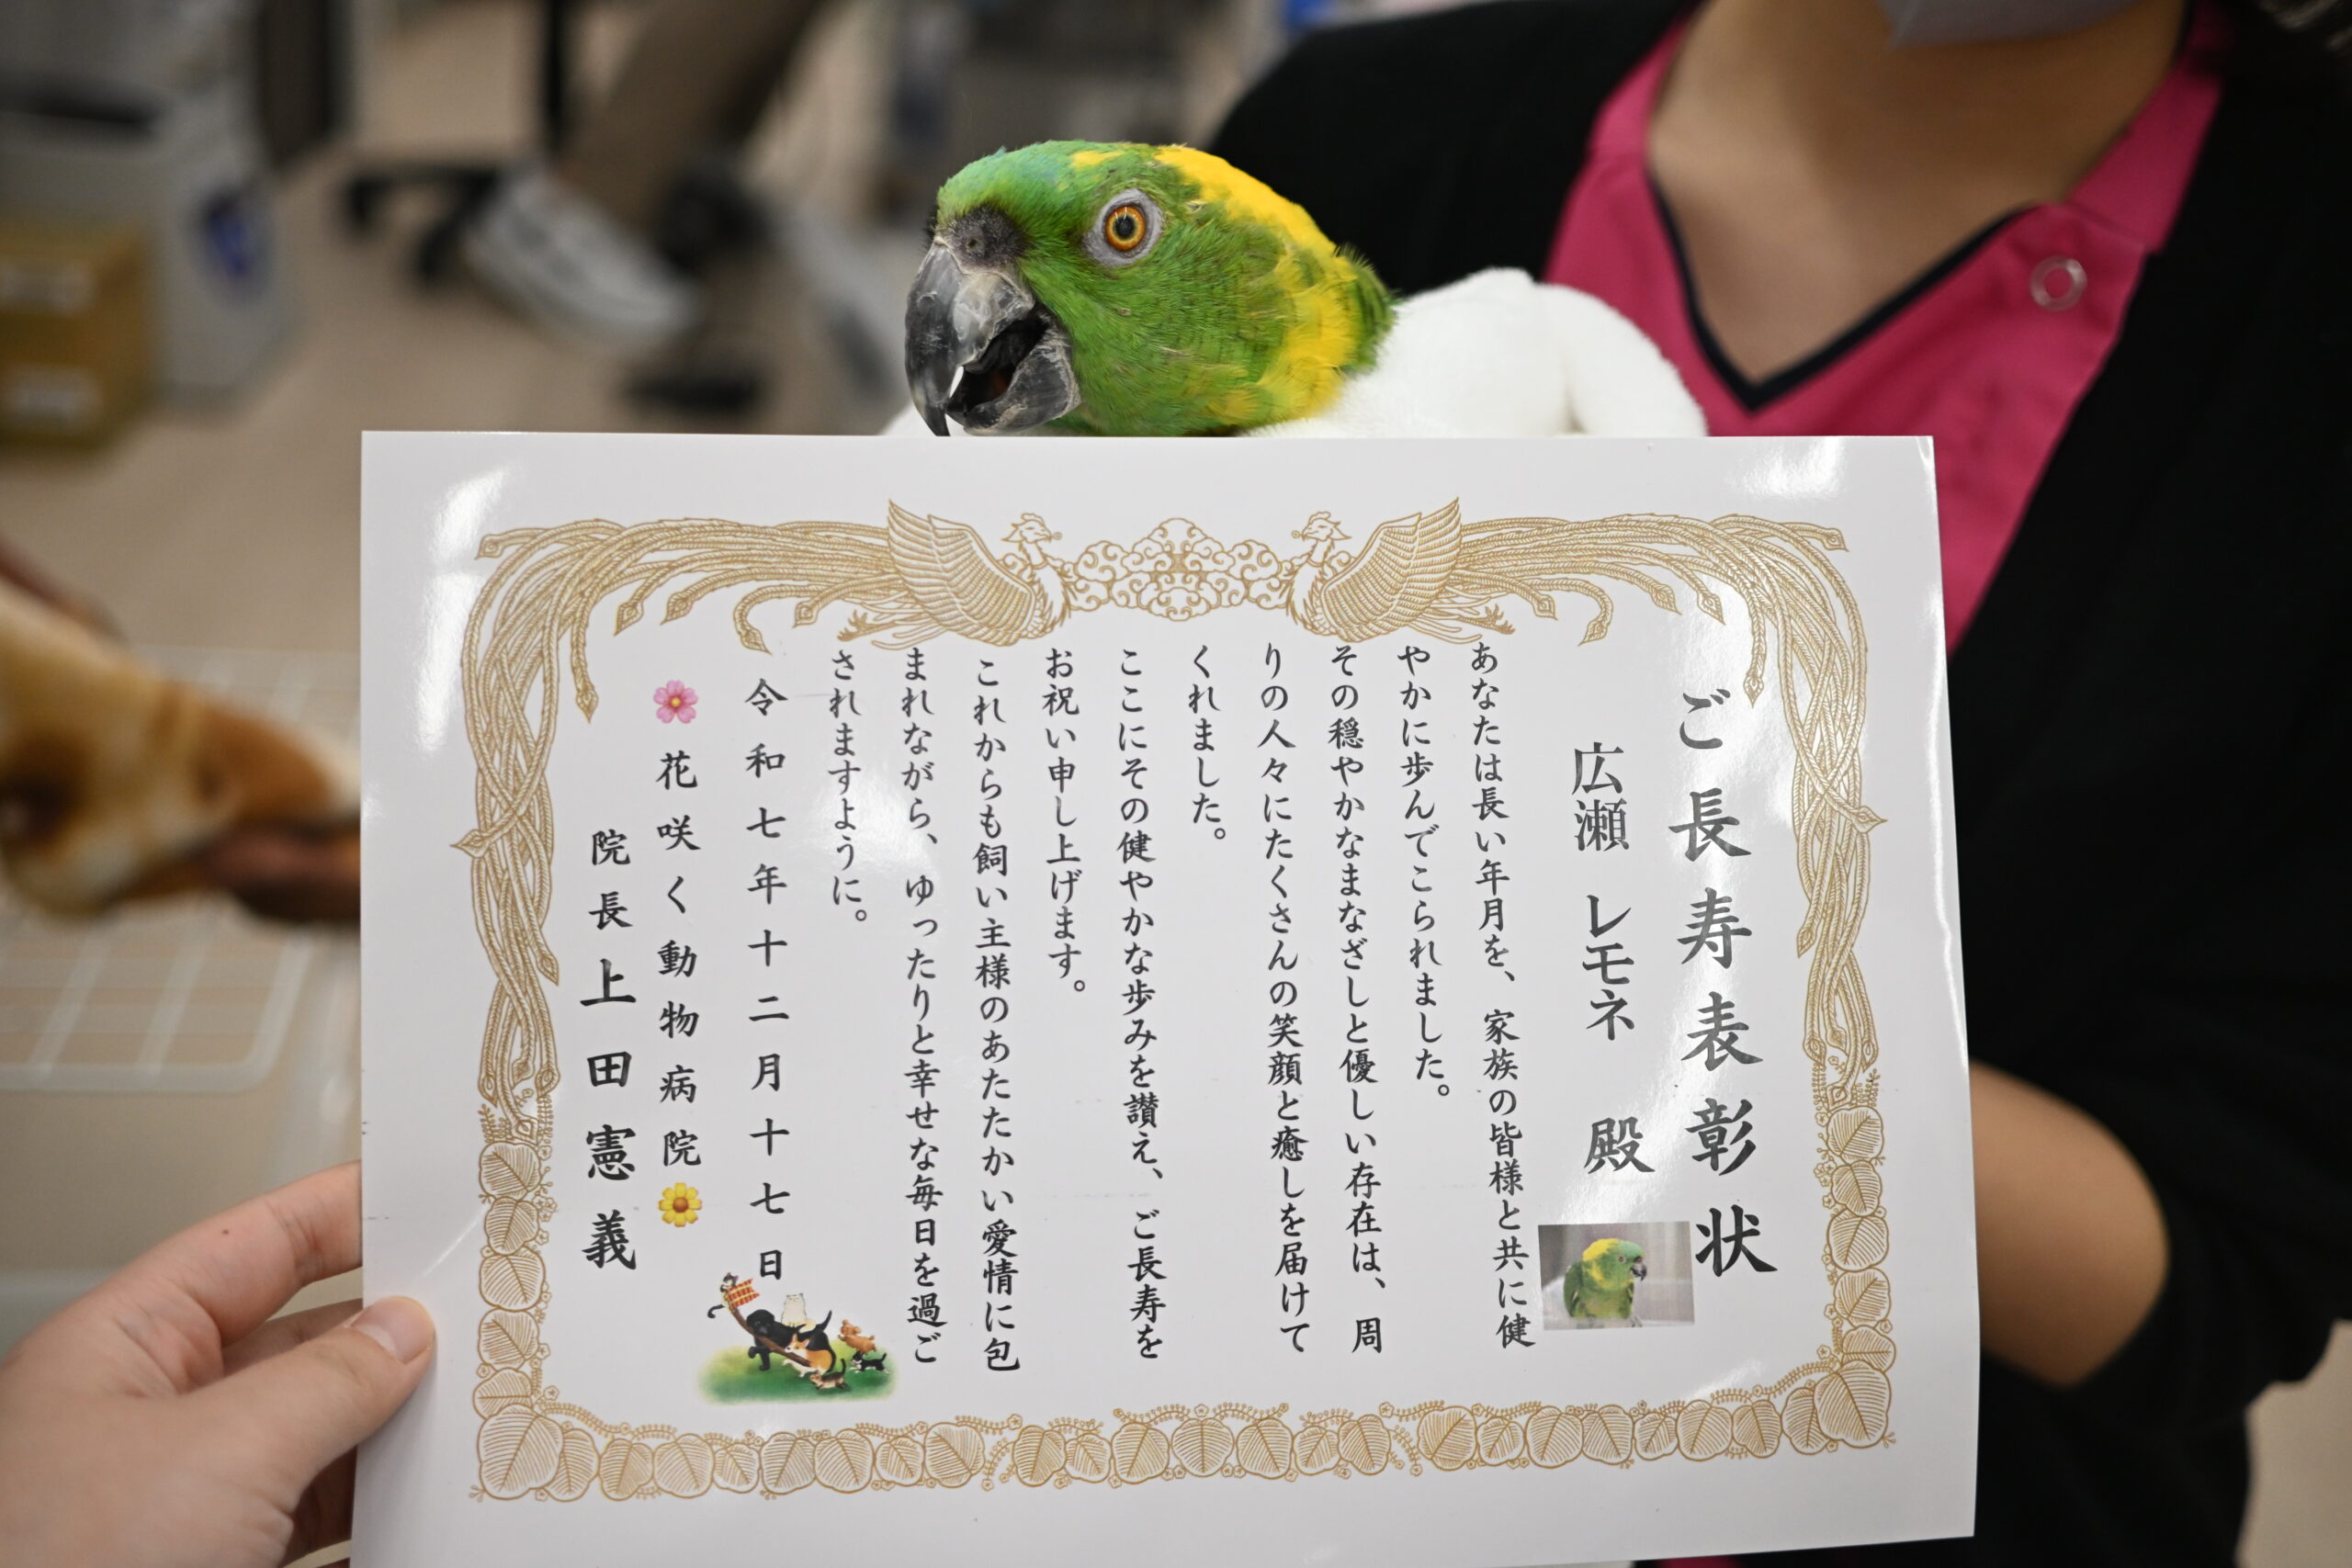 ご長寿表彰状
広瀬 レモネ 殿
あなたは長い年月を、家族の皆様と共に健
やかに歩んでこられました。
その穏やかなまなざしと優しい存在は、周
りの人々にたくさんの笑顔と癒しを届けて
くれました。
ここにその健やかな歩みを讃え、ご長寿を
お祝い申し上げます。
これからも飼い主様のあたたかい愛情に包
まれながら、ゆったりと幸せな毎日を過ご
されますように。
令和七年十二月十七日
花咲く動物病院
院長上田憲義